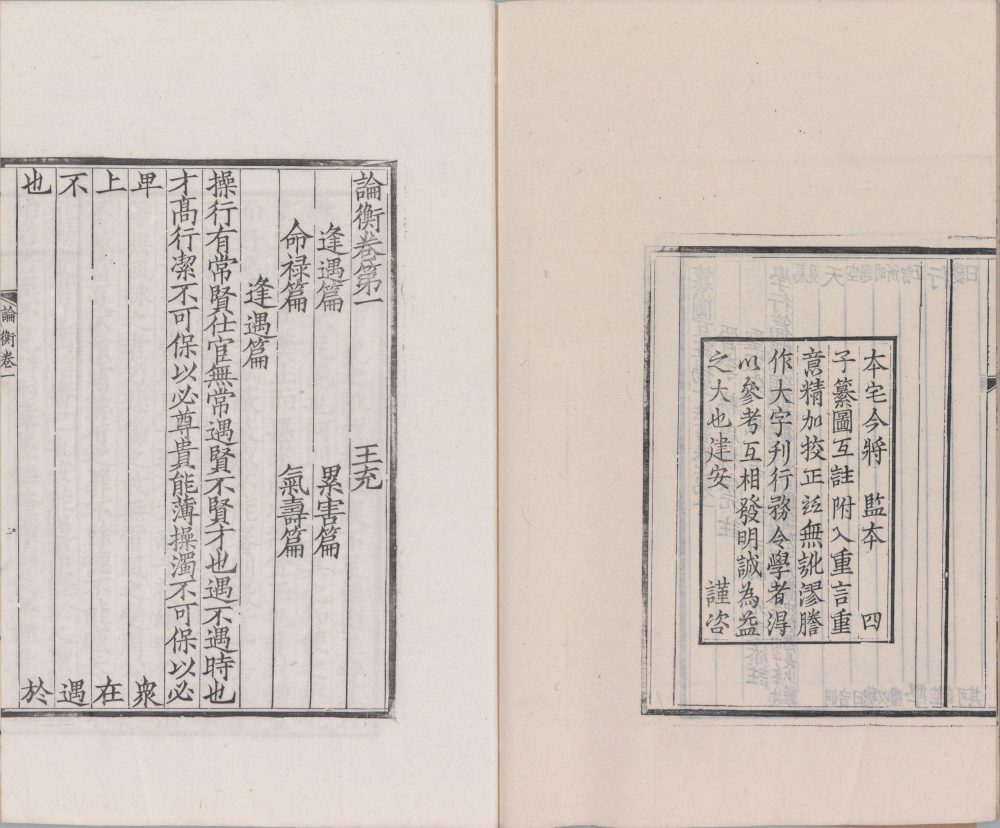 本宅今將 監本 四
子纂圖互註附入重言重
意精加校正竝無訛謬謄
作大字刊行務令學者得
以參考互相發明誠為益
之大也建安 謹咨
論衡卷第一 王充
逢遇篇 累害篇
命禄篇 氣壽篇
逢遇篇
操行有常賢仕宦無常遇賢不賢才也遇不遇時也
才高行潔不可保以必尊貴能薄操濁不可保以必
卑 衆
上 在
不 遇
也 於
論衡卷一